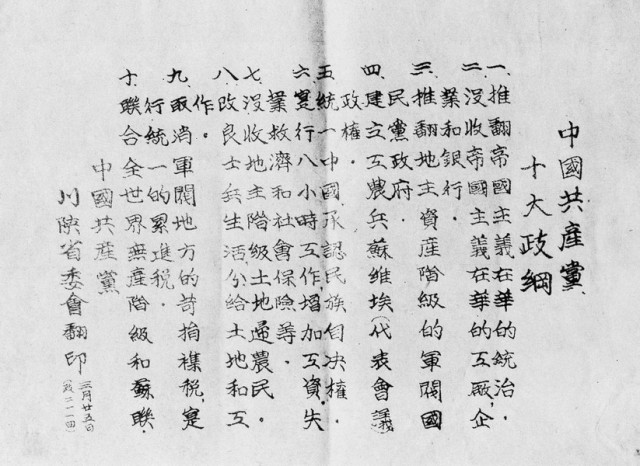 中國共產黨
十大政綱
一.推翻帝國主義在華的統治.
二.沒收帝國主義在華的工厰,企
業和銀行.
三.推翻地主資產階級的軍閥國
民黨政府.
四.建立工農兵蘇維埃(代表會議)
政權.
五.統一中國承認民族自決權.
六.寔行八小時工作,增加工資,失
業救濟和社會保險等.
七.沒收地主階級土地還農民.
八.改良士兵生活分給土地和工
作.
九.取消軍閥地方的苛捐襍稅,寔
行統一的累進稅.
十.聯合全世界無產階級和蘇聯.
中國共產黨
川陝省委會翻印
三月廿五日